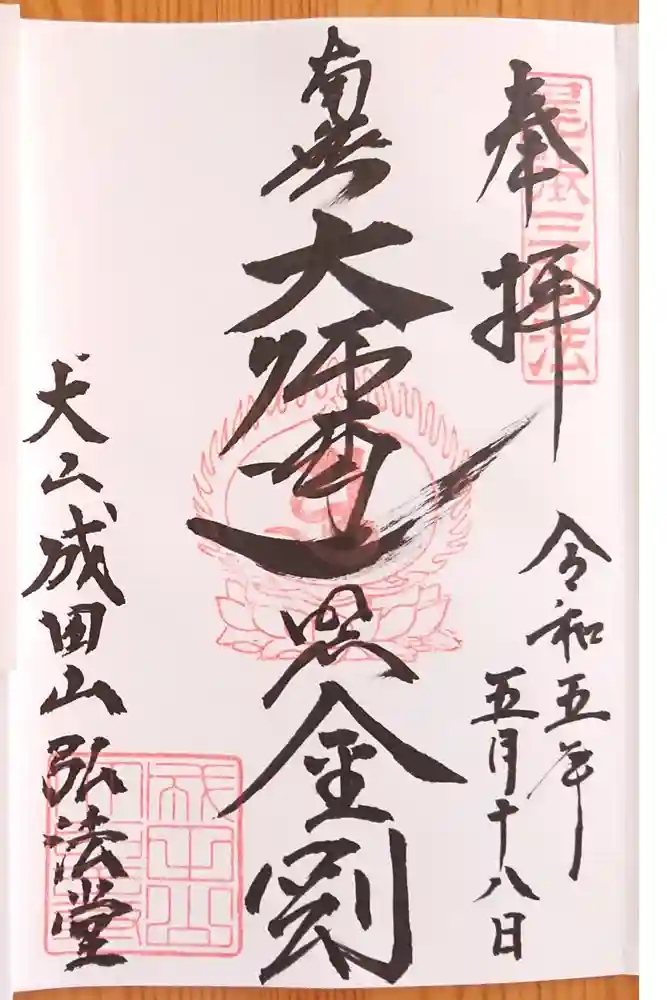 奉拝
尾張三弘法
令和五年
五月十八日
南無大師遍照金剛
犬山成田山弘法堂